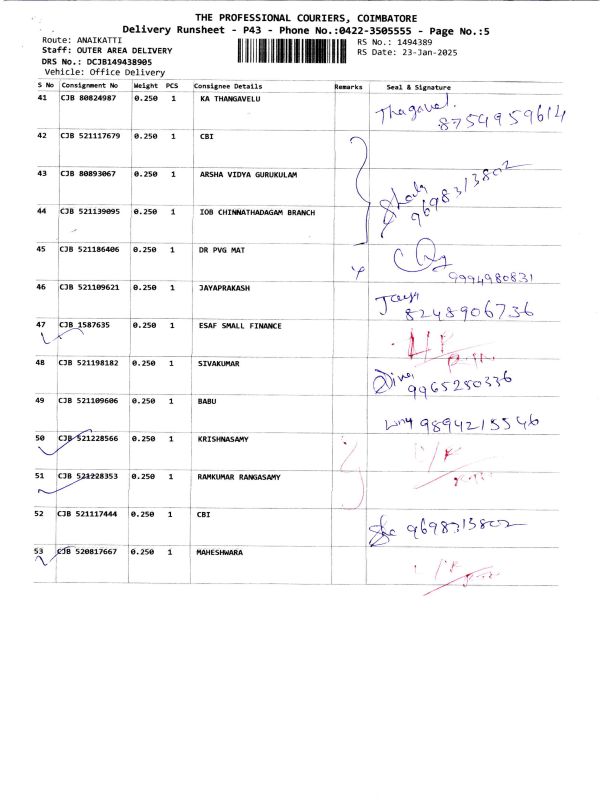 THE PROFESSIONAL COURIERS, COIMBATORE
Delivery Runsheet - P43 - Phone No.:0422-3505555 - Page No.:5
Route: ANAIKATTI
RS No.: 1494389
Staff: OUTER AREA DELIVERY
RS Date: 23-Jan-2025
DRS No.: DCJB149438905
Vehicle: Office Delivery
S No Consignment No Weight PCS Consignee Details Remarks Seal & Signature
41 CJB 80824987 0.250 1 KA THANGAVELU
Thagavel. 8754959614
42 CJB 521117679 0.250 1 CBI
43 CJB 80893067 0.250 1 ARSHA VIDYA GURUKULAM
9698313802
44 CJB 521139095 0.250 1 IOB CHINNATHADAGAM BRANCH
45 CJB 521186406 0.250 1 DR PVG MAT
9994980831
46 CJB 521109621 0.250 1 JAYAPRAKASH
8248906736
47 CJB 1587635 0.250 1 ESAF SMALL FINANCE
48 CJB 521198182 0.250 1 SIVAKUMAR
9965250336
49 CJB 521109606 0.250 1 BABU
9894215546
50 CJB 521228566 0.250 1 KRISHNASAMY
51 CJB 521228353 0.250 1 RAMKUMAR RANGASAMY
52 CJB 521117444 0.250 1 CBI
9698313802
53 CJB 520817667 0.250 1 MAHESHWARA